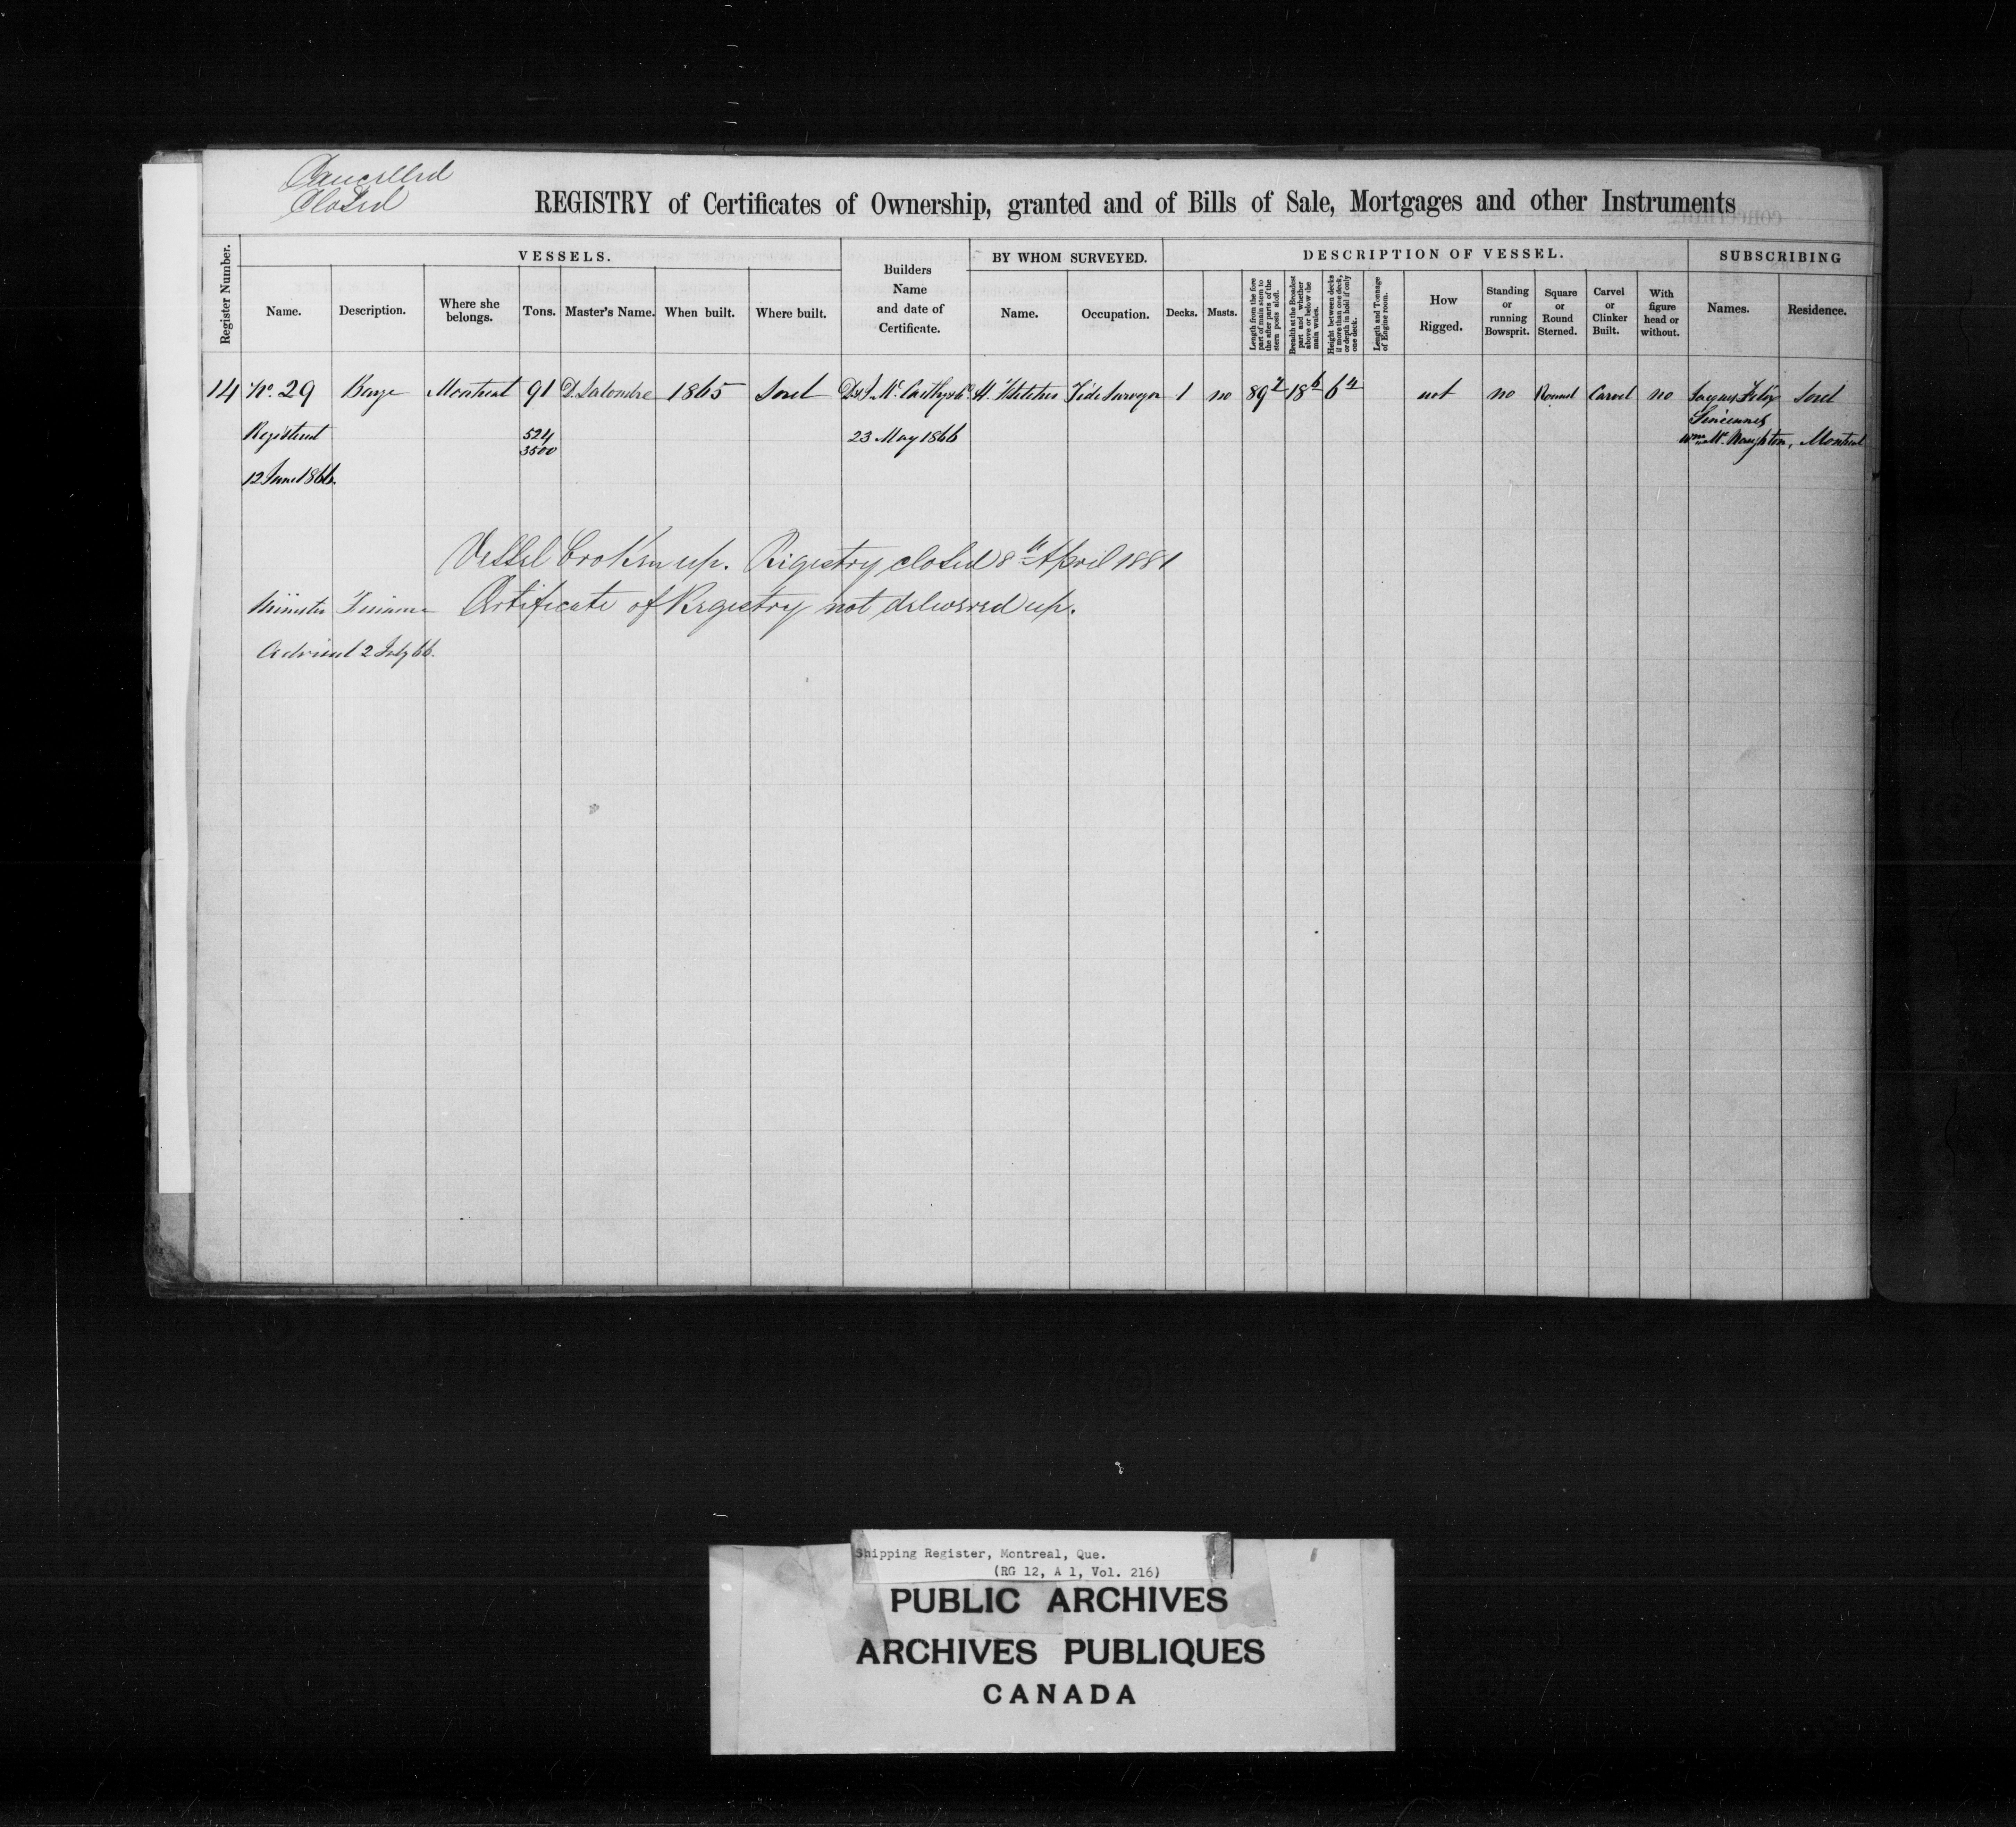 Cancelled
Closed
REGISTRY of Certificates of Ownership, granted and of Bills of Sale, Mortgages and other Instruments
Register Number.
VESSELS.
Name.
Description.
Where she belongs.
Tons.
Master's Name.
When built.
Where built.
Builders Name and date of Certificate.
BY WHOM SURVEYED.
Name.
Occupation.
DESCRIPTION OF VESSEL.
Decks.
Masts.
Length from the fore part of main stem to the after parts of the stern posts aloft.
Breadth at the Broadest part and whether above or below the main wales.
Height between decks if more than one deck, or depth in hold if only one deck.
Length and Tonnage of Engine room.
How Rigged.
Standing or running Bowsprit.
Square or Round Sterned.
Carvel or Clinker Built.
With figure head or without.
SUBSCRIBING
Names.
Residence.
14 No. 29 Barge Montreal 91 D. Lalondre 1865 Sorel D. & J. McCarthy & Co H. Fletcher Tide Surveyor 1 no 89 18 6 6 4 not no Round Carvel no Jacques Felix Sorel
Sincennes
Registered 524 23 May 1866 Wm. McNaughton, Montreal
3500
12 June 1866.
Vessel broken up. Registry closed 8th April 1881
Minister Finance Certificate of Registry not delivered up.
Advised 2 July 66.
Shipping Register, Montreal, Que.
(RG 12, A 1, Vol. 216)
PUBLIC ARCHIVES
ARCHIVES PUBLIQUES
CANADA